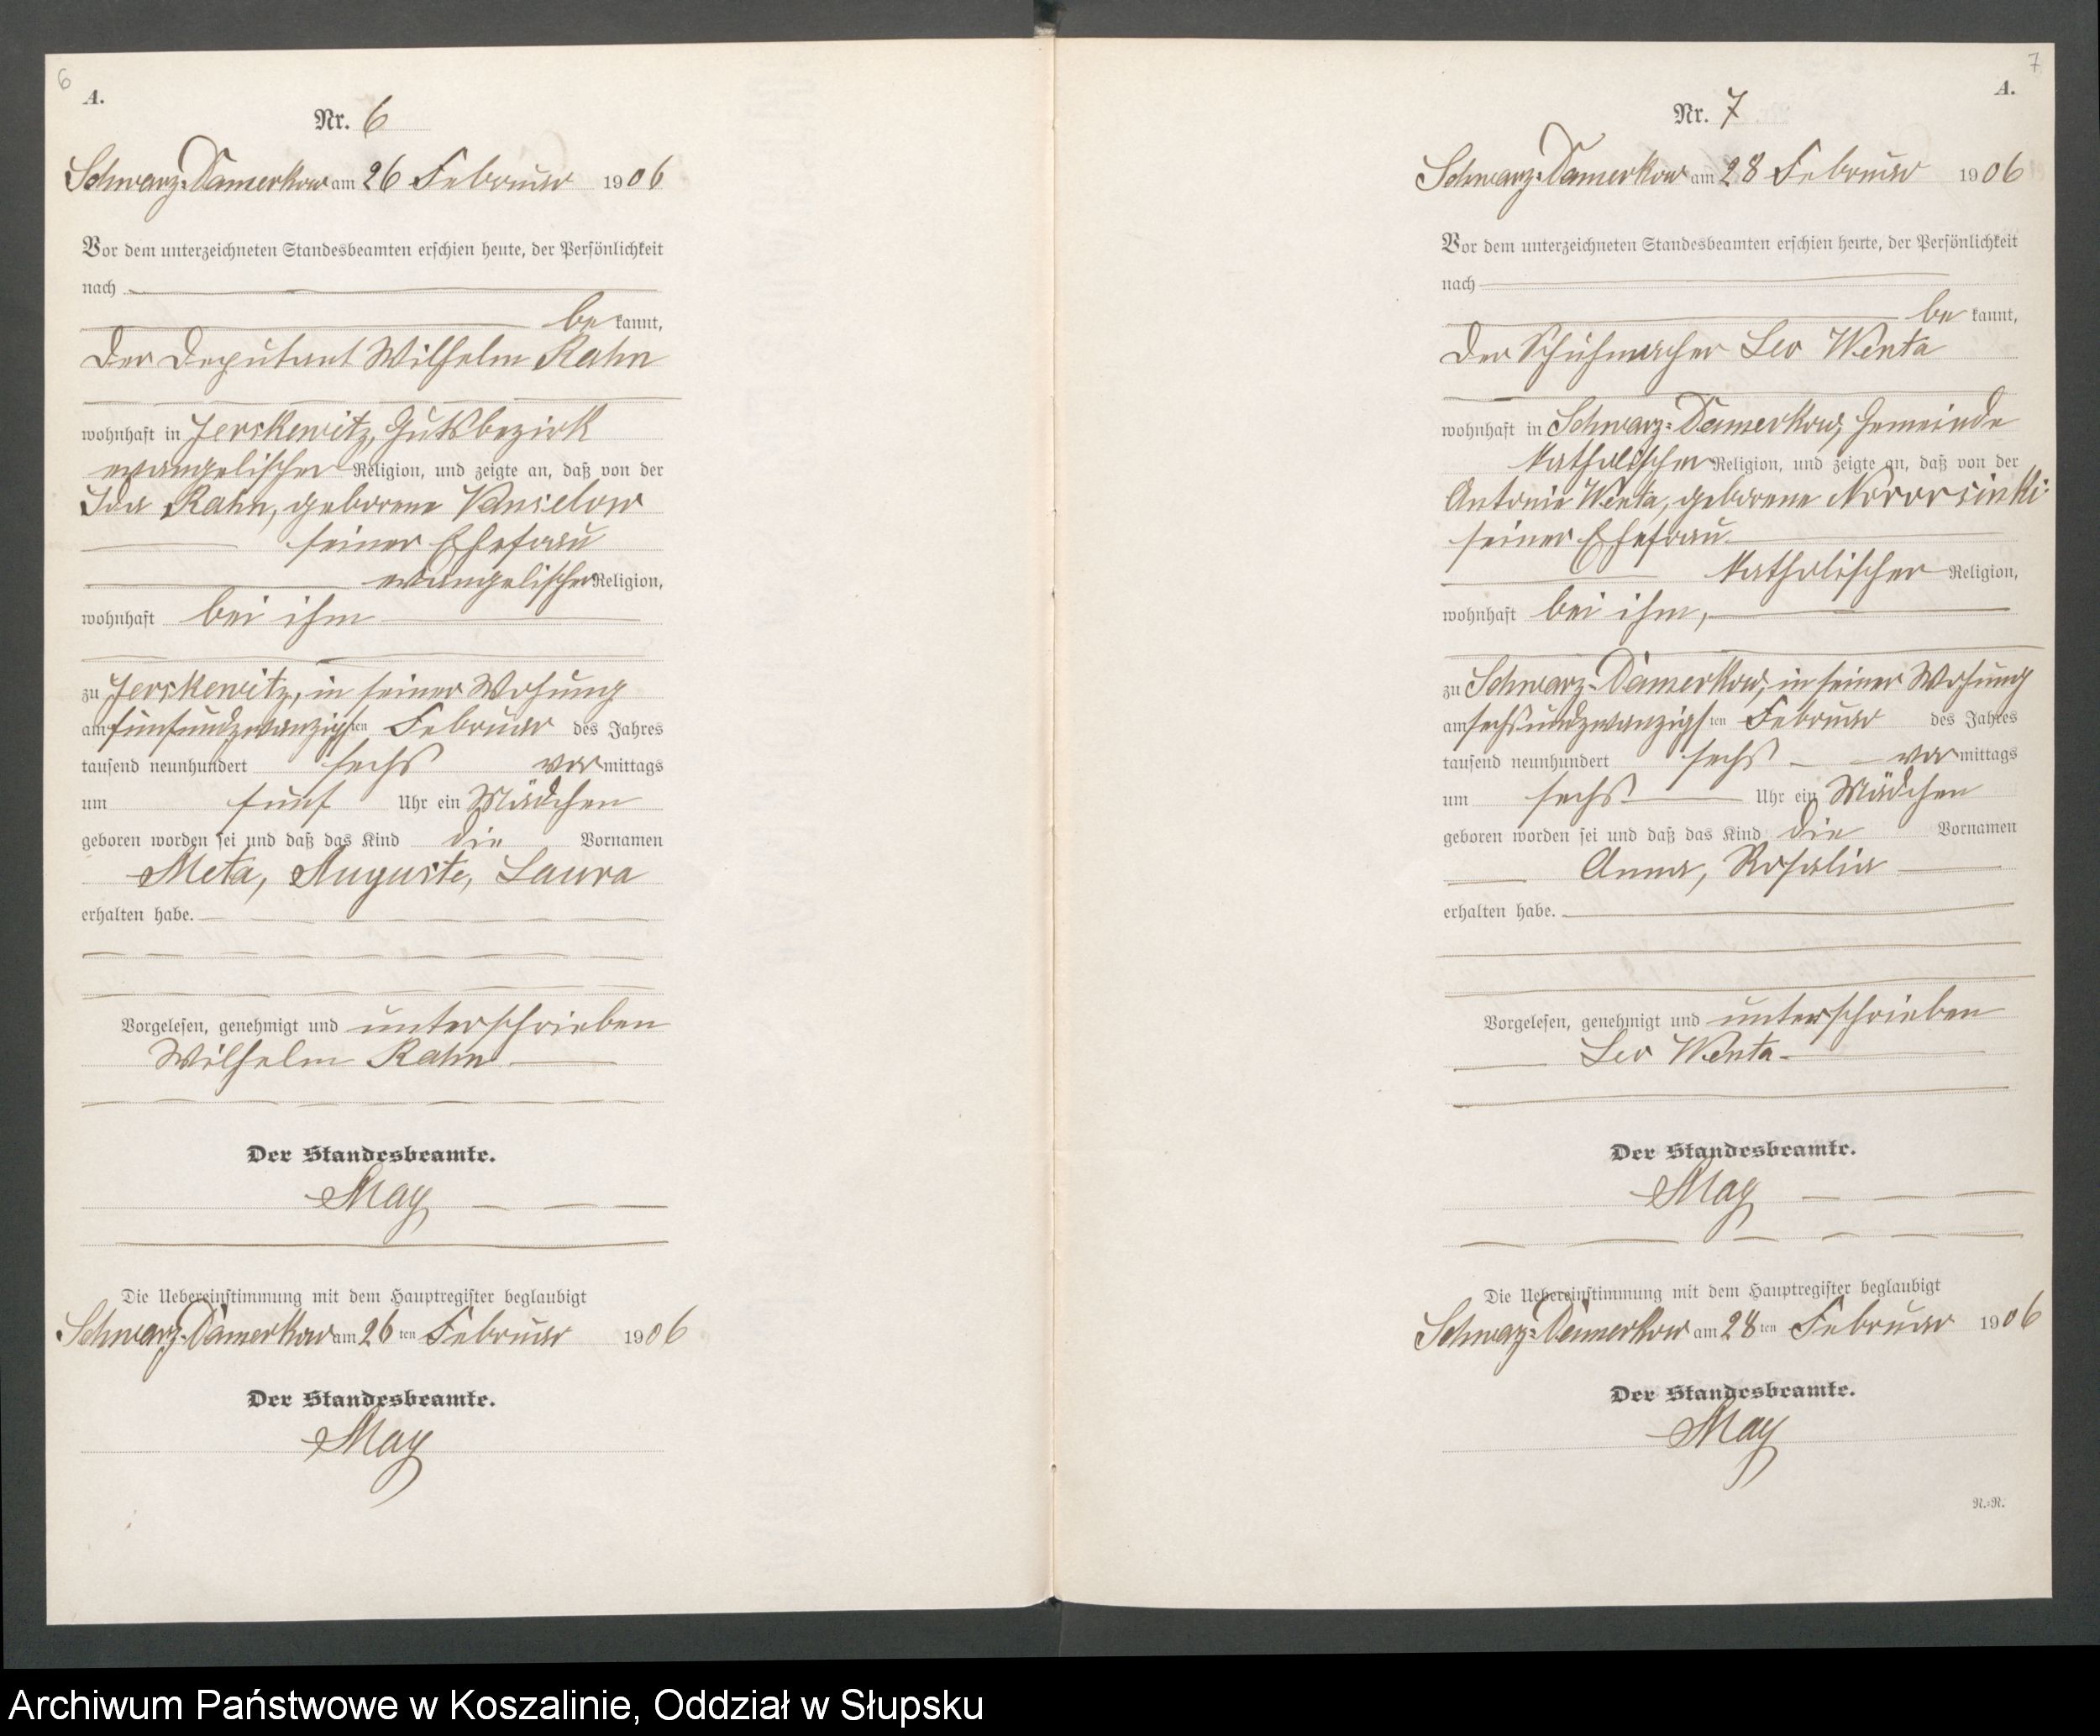 6
A.
Nr. 6
Schwarz-Damerkow am 26 Februar 1906
Vor dem unterzeichneten Standesbeamten erschien heute, der Persönlichkeit
nach
be kannt,
der Deputant Wilhelm Rahn
wohnhaft in Jerskewitz, Gutsbezirk
evangelischer Religion, und zeigte an, daß von der
Ida Rahn, geborene Vanselow
seiner Ehefrau
evangelischer Religion,
wohnhaft bei ihm
zu Jerskewitz, in seiner Wohung
am fünfundzwanzigsten Februar des Jahres
tausend neunhundert sechs vor mittags
um fünf Uhr ein Mädchen
geboren worden sei und daß das Kind die Vornamen
Meta, Auguste, Laura
erhalten habe.
Vorgelesen, genehmigt und unterschrieben
Wilhelm Rahn
Der Standesbeamte.
May
Die Uebereinstimmung mit dem Hauptregister beglaubigt
Schwarz-Damerkow am 26 ten Februar 1906
Der Standesbeamte.
May
7
A.
Nr. 7
Schwarz-Damerkow am 28 Februar 1906
Vor dem unterzeichneten Standesbeamten erschien heute, der Persönlichkeit
nach
be kannt,
der Schuhmacher Leo Wenta
wohnhaft in Schwarz-Damerkow, Gemeinde
katholischer Religion, und zeigte an, daß von der
Antonie Wenta, geborene
seiner Ehefrau
katholischer Religion,
wohnhaft bei ihm,
zu Schwarz-Damerkow, in seiner Wohung
am sechsundzwanzigsten Februar des Jahres
tausend neunhundert sechs vor mittags
um sechs Uhr ein Mädchen
geboren worden sei und daß das Kind die Vornamen
Anna, Rosalia
erhalten habe.
Vorgelesen, genehmigt und unterschrieben
Leo Wenta
Der Standesbeamte.
May
Die Uebereinstimmung mit dem Hauptregister beglaubigt
Schwarz-Damerkow am 28 ten Februar 1906
Der Standesbeamte.
May
N.-N.
Archiwum Państwowe w Koszalinie, Oddział w Słupsku